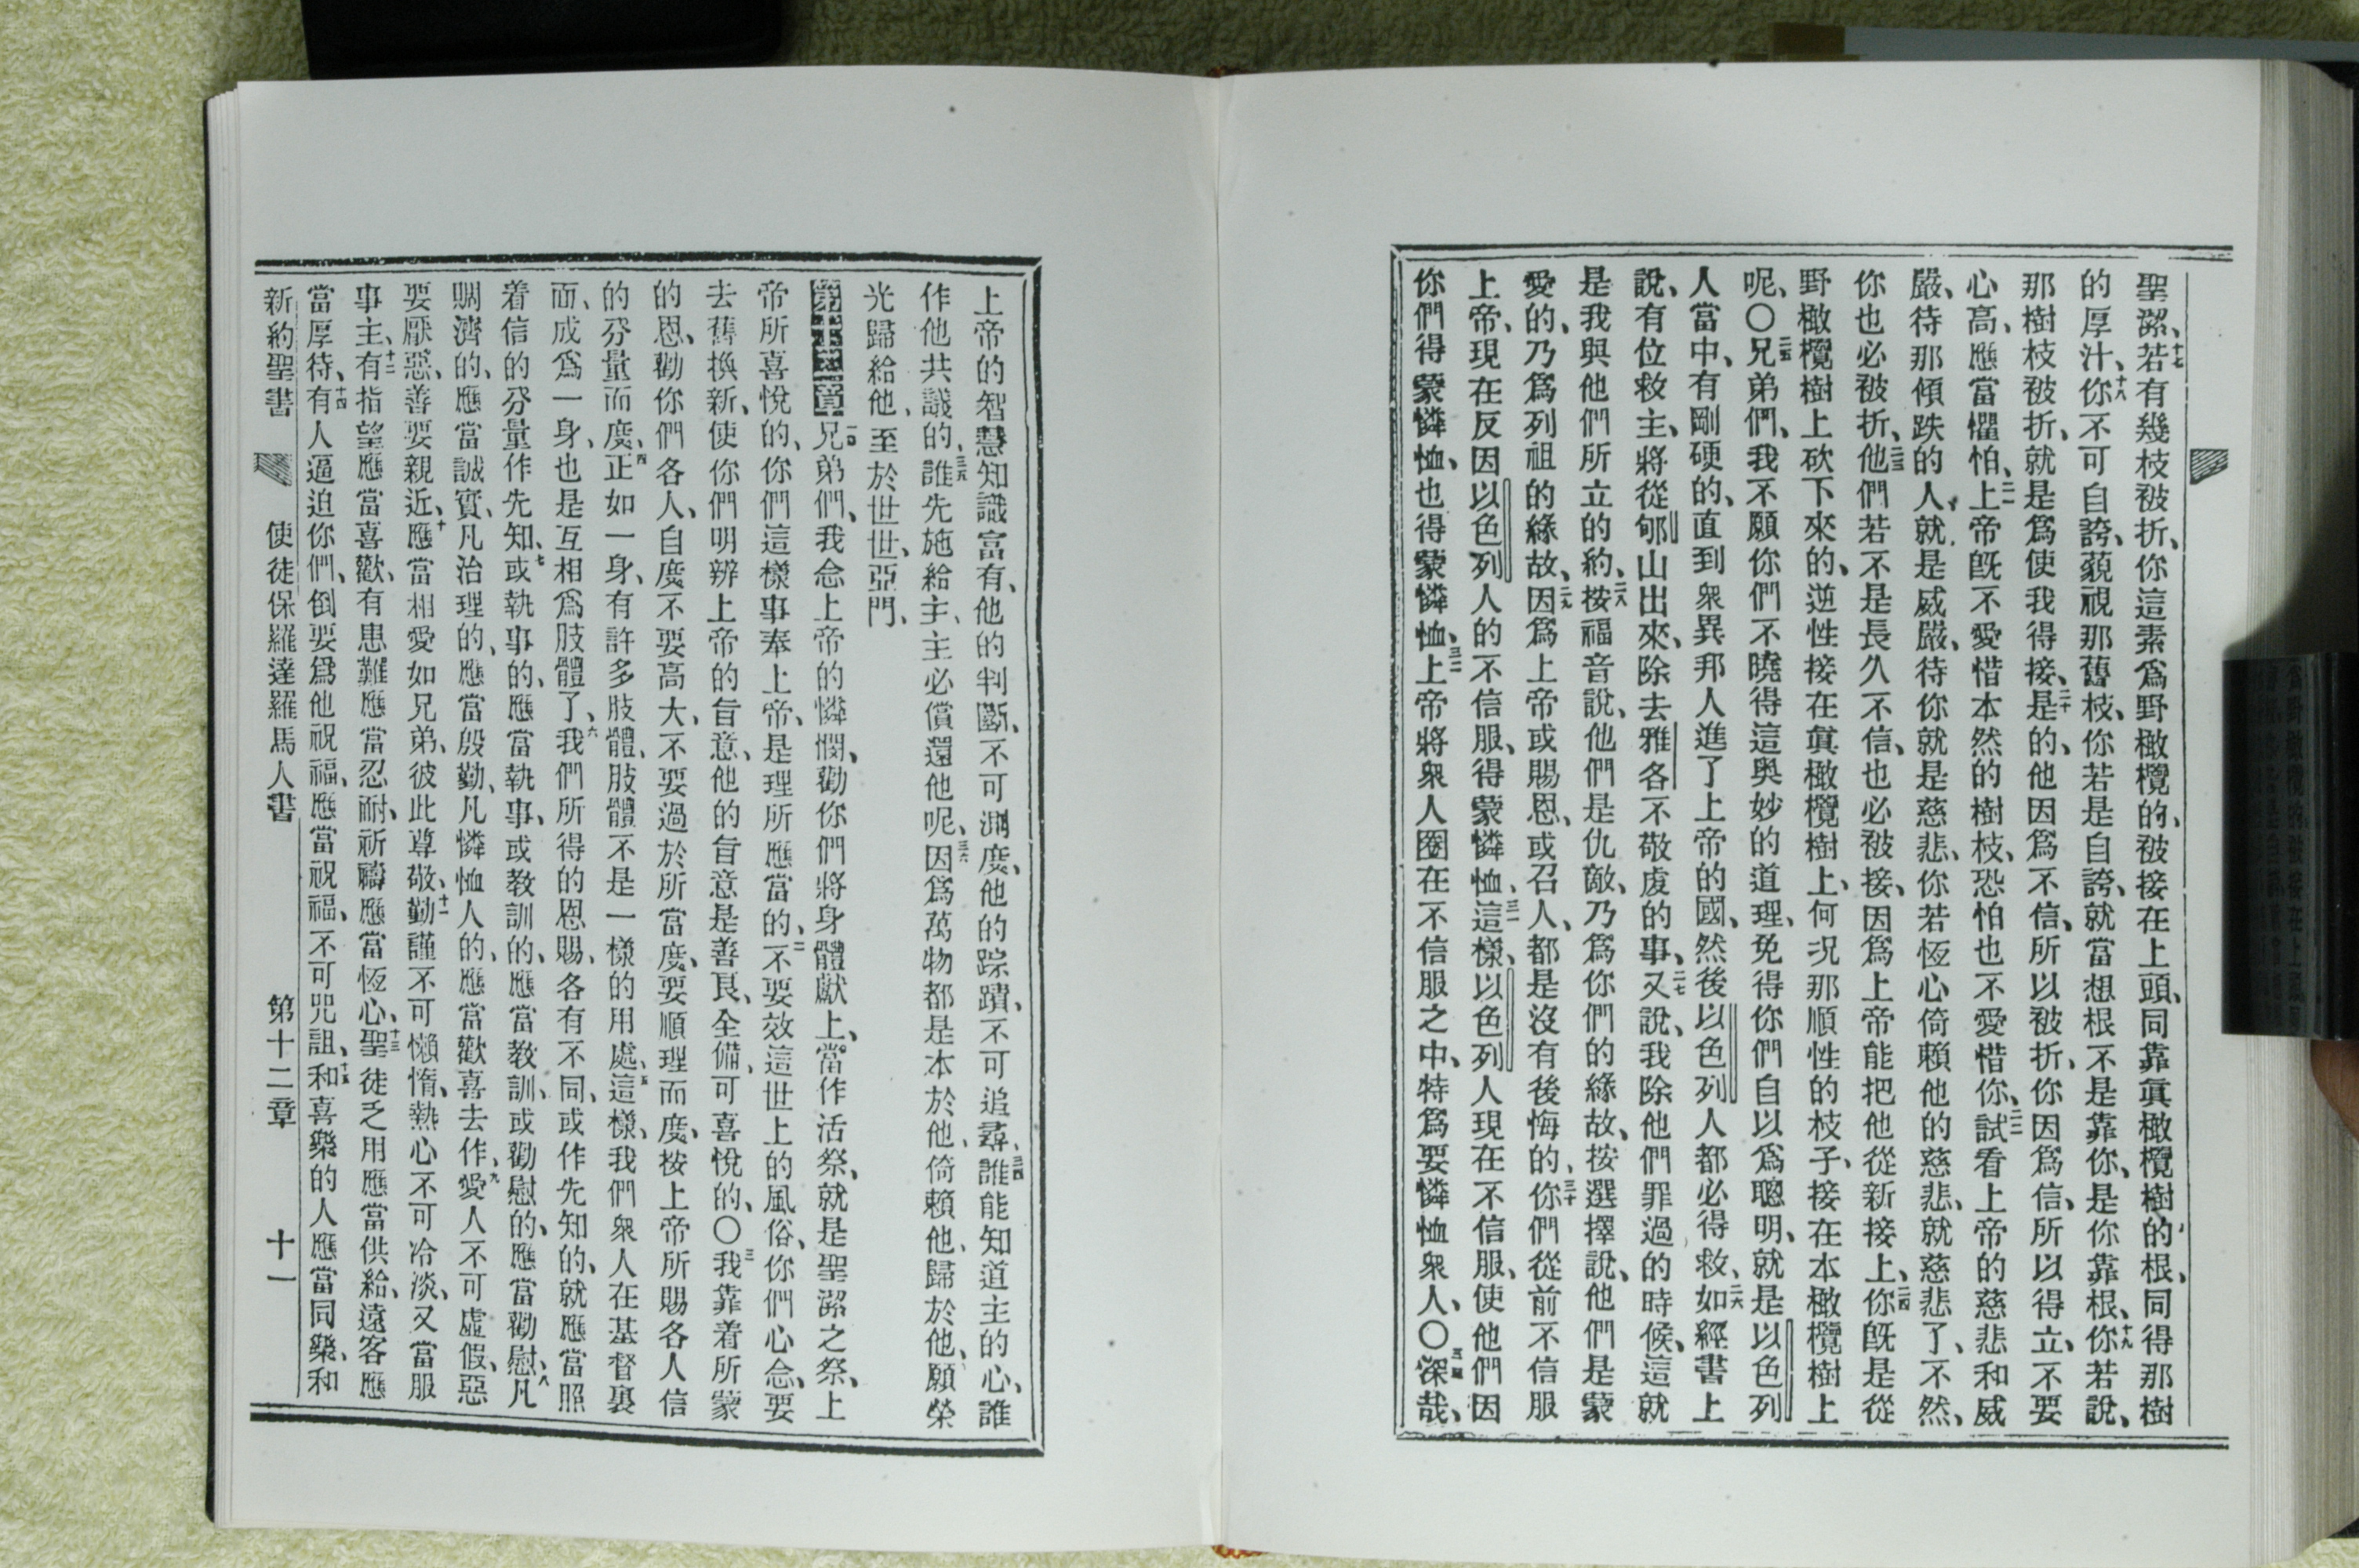 聖潔、十七若有幾枝被折、你這素爲野橄欖的、被接在上頭、同靠眞橄欖樹的根、同得那樹
的厚汁、十八你不可自誇、藐視那舊枝、你若是自誇、就當想根不是靠你、是你靠根、十九你若說、
那樹枝被折、就是爲使我得接、二十是的、他因爲不信、所以被折、你因爲信、所以得立、不要
心高、應當懼怕、二一上帝旣不愛惜本然的樹枝、恐怕也不愛惜你、二二試看上帝的慈悲和威
嚴、待那傾跌的人、就是威嚴、待你就是慈悲、你若恆心倚賴他的慈悲、就慈悲了、不然、
你也必被折、二三他們若不是長久不信、也必被接、因爲上帝能把他從新接上、二四你旣是從
野橄欖樹上砍下來的、逆性接在眞橄欖樹上、何況那順性的枝子、接在本橄欖樹上
呢、〇二五兄弟們、我不願你們不曉得這奧妙的道理、免得你們自以爲聰明、就是以色列
人當中、有剛硬的、直到衆異邦人進了上帝的國、然後以色列人都必得救、二六如經書上
說、有位救主、將從郇山出來、除去雅各不敬虔的事、二七又說、我除他們罪過的時候、這就
是我與他們所立的約、二八按福音說、他們是仇敵、乃爲你們的緣故、按選擇說、他們是蒙
愛的、乃爲列祖的緣故、二九因爲上帝或賜恩、或召人、都是沒有後悔的、三十你們從前不信服
上帝、現在反因以色列人的不信服、得蒙憐恤、三一這樣、以色列人現在不信服、使他們因
你們得蒙憐恤、也得蒙憐恤、三二上帝將衆人圈在不信服之中、特爲要憐恤衆人、〇三三深哉、
上帝的智慧知識富有、他的判斷、不可測度、他的踪蹟、不可追尋、三四誰能知道主的心、誰
作他共議的、三五誰先施給主、主必償還他呢、三六因爲萬物都是本於他、倚賴他、歸於他、願榮
光歸給他、至於世世、亞門、
第十二章一兄弟們、我念上帝的憐憫、勸你們將身體獻上、當作活祭、就是聖潔之祭、上
帝所喜悅的、你們這樣事奉上帝、是理所應當的、二不要效這世上的風俗、你們心念、要
去舊換新、使你們明辨上帝的旨意、他的旨意是善良、全備、可喜悅的、〇三我靠着所蒙
的恩、勸你們各人、自度不要高大、不要過於所當度、要順理而度、按上帝所賜各人信
的分量而度、四正如一身、有許多肢體、肢體不是一樣的用處、五這樣、我們衆人在基督裏
而、成爲一身、也是互相爲肢體了、六我們所得的恩賜、各有不同、或作先知的、就應當照
着信的分量作先知、七或執事的、應當執事、或敎訓的、應當敎訓、或勸慰的、應當勸慰、八凡
賙濟的、應當誠實、凡治理的、應當殷勤、凡憐恤人的、應當歡喜去作、九愛人不可虛假、惡
要厭惡、善要親近、十應當相愛如兄弟、彼此尊敬、十一勤謹不可懶惰、熱心不可冷淡、又當服
事主、十二有指望應當喜歡、有患難應當忍耐、祈禱應當恆心、十三聖徒乏用應當供給、遠客應
當厚待、十四有人逼迫你們、倒要爲他祝福、應當祝福、不可咒詛、十五和喜樂的人應當同樂、和
新約聖書 使徒保羅達羅馬人書 第十二章 十一